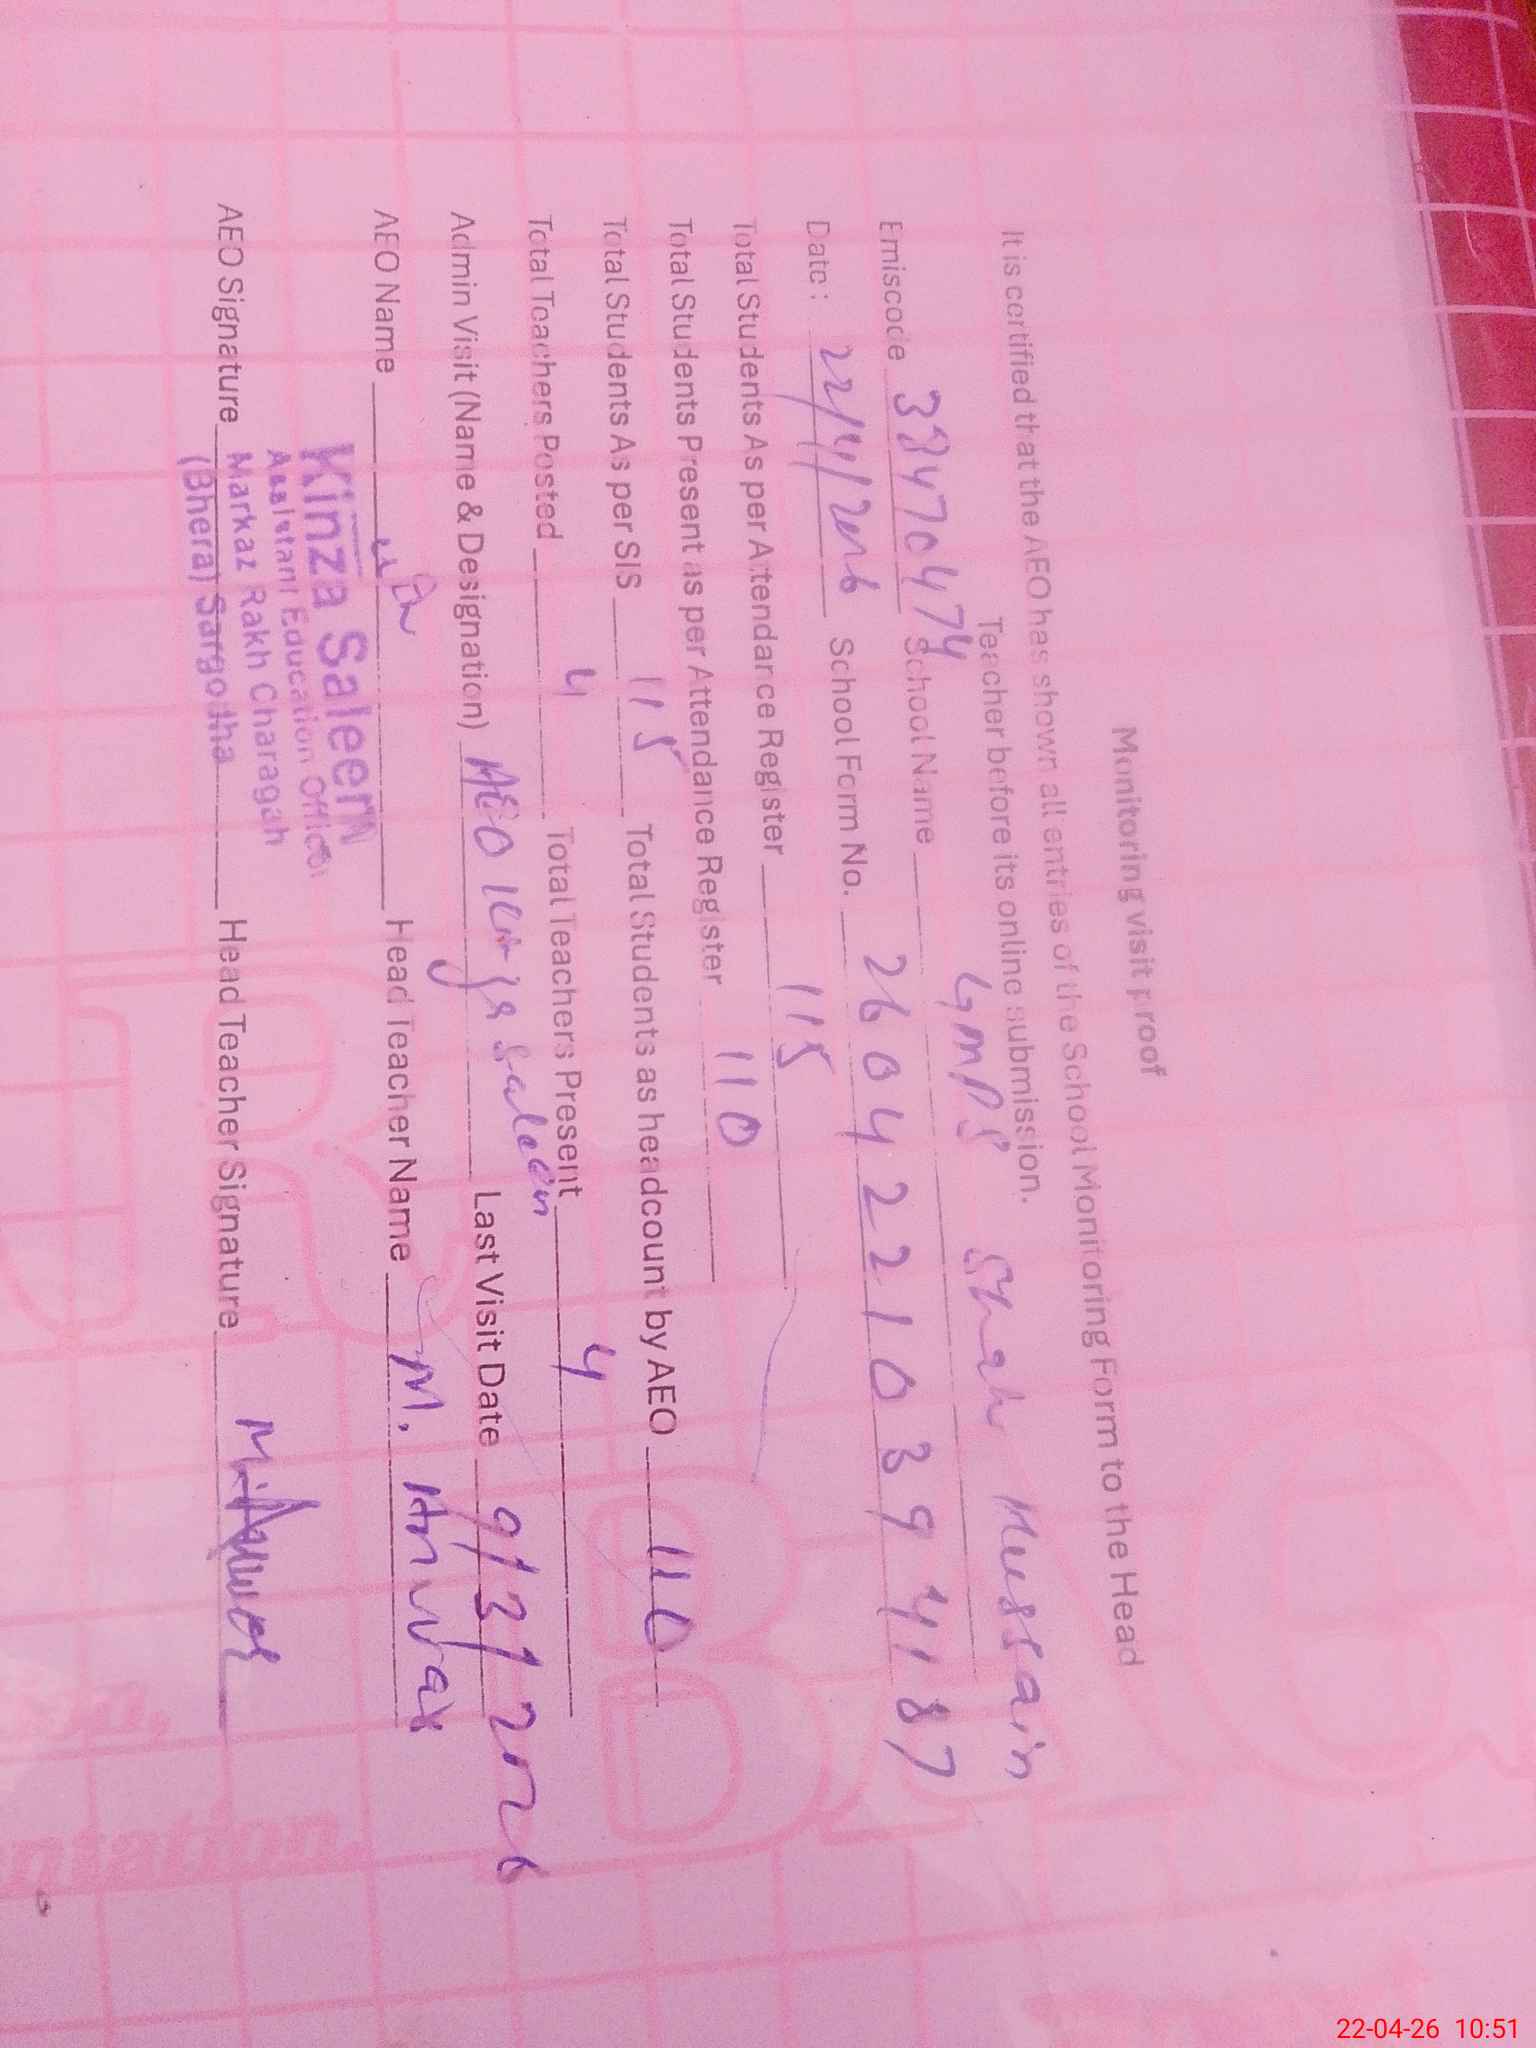 Monitoring visit proof
It is certified that the AEO has shown all entries of the School Monitoring Form to the Head
Teacher before its online submission.
Emiscode 38470474 School Name GMPS Shah Hussain
Date: 22/4/2026 School Form No. 26042210394187
Total Students As per Attendance Register 115
Total Students Present as per Attendance Register 110
Total Students As per SIS 115 Total Students as headcount by AEO 110
Total Teachers Posted 4 Total Teachers Present 4
Admin Visit (Name & Designation) AEO Kinza Saleem Last Visit Date 9/3/2026
AEO Name Head Teacher Name M. Anwar
Kinza Saleem
Assistant Education Officer
AEO Signature Markaz Rakh Charagah Head Teacher Signature M. Anwar
(Bhera) Sargodha
ntation.
22-04-26 10:51